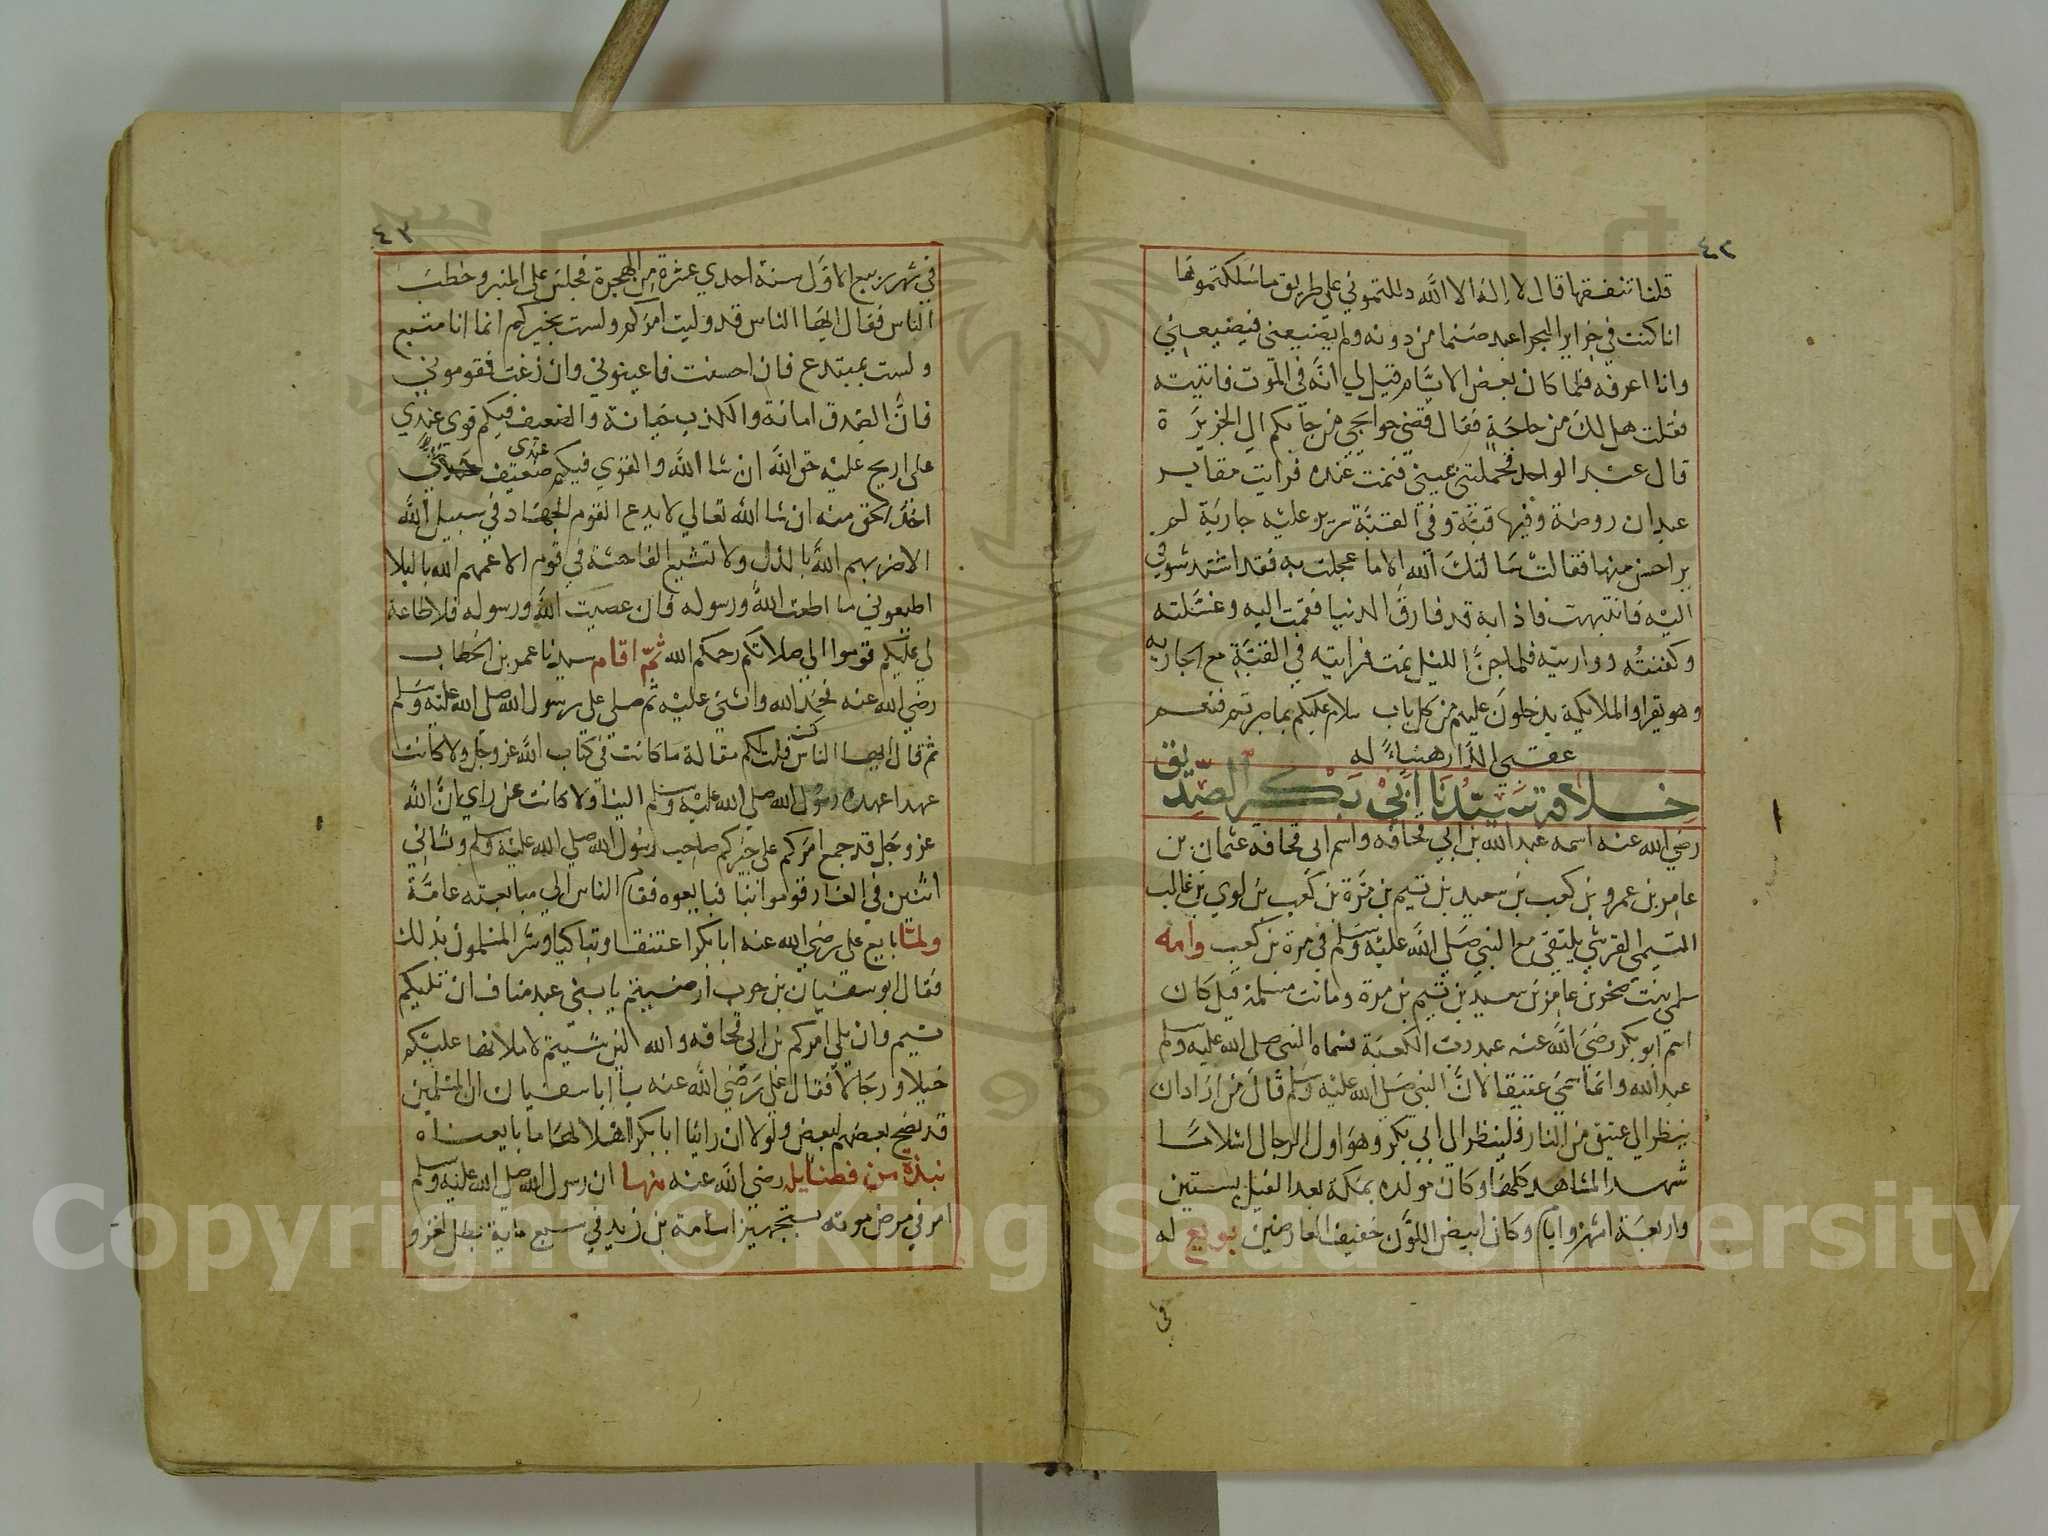 ٤٢
قلنا تنفقها قال لا إله الا الله دللتموني على طريق ما سلكتموها
انا كنت في جزاير البحر اعبد صنما من دونه ولم يضيعني فيضيعني
وانا اعرفه فلما كان بعض الايام قيل لي انه في الموت فاتيته
فقلت هل لك من حاجة فقال قضى حوايجي من جابكم الي الجزيرة
قال عبد الواحد فحملتني عيني فنمت عنده فرايت مقابر
عبدان روضة وفيها قبة وفي القبة سرير عليه جارية لم
ير احسن منها فقالت سالتك الله الا ما عجلت به فقد اشتد شوقي
اليه فانتبهت فاذا به قد فارق الدنيا فقمت اليه وغسلته
وكفنته وواريته فلما جن الليل نمت فرايته في القبة مع الجاريه
وهو يقرا والملايكة يدخلون عليهم من كل باب سلام عليكم بما صبرتم فنعم
عقبى الدار هنياءً له
خلافة سيدنا ابي بكر الصديق
رضي الله عنه اسمه عبد الله بن ابي قحافه واسم ابي قحافه عثمان بن
عامر بن عمرو بن كعب بن سعيد بن تيم بن مرة بن كعب بن لوي بن غالب
التيمي القرشي يلتقي مع النبي صلى الله عليه وسلم في مرة بن كعب وامه
سلمى بنت صخر بن عامر بن سعيد بن تيم بن مرة وماتت مسلمة قيل كان
اسم ابو بكر رضي الله عنه عبد رب الكعبة فسماه النبي صلى الله عليه وسلم
عبد الله وانما سمي عتيقا لان النبي صلى الله عليه وسلم قال من اراد ان
ينظر الي عتيق من النار فلينظر الى ابي بكر وهو اول الرجال اسلاما
شهد المشاهد كلها وكان مولده بمكة بعد الفيل بسنتين
واربعة اشهر وايام وكان ابيض اللون خفيف العارضين بويع له
في
٤٣
في شهر ربيع الاول سنة احدي عشرة من الهجرة فجلس على المنبر وخطب
الناس فقال ايها الناس قد وليت امركم ولست بخيركم انما انا متبع
ولست بمبتدع فان احسنت فاعينوني وان زغت فقوموني
فان الصدق امانة والكذب خيانة والضعيف فيكم قوى عندي
حتى اريح عليه حق الله ان شا الله والقوي فيكم ضعيف عندى حتى
اخذ الحق منه ان شا الله تعالي لا يدع القوم الجهاد في سبيل الله
الا ضربهم الله بالذل ولا تشيع الفاحشة في قوم الا عمهم الله بالبلا
اطيعوني ما اطعت الله ورسوله فان عصيت الله ورسوله فلا طاعة
لي عليكم قوموا الي صلاتكم رحمكم الله ثم اقام سيدنا عمر بن الخطاب
رضي الله عنه فحمد الله واثنى عليه ثم صلى على رسول الله صلى الله عليه وسلم
ثم قال ايها الناس كنت قلت لكم مقالة ما كانت في كتاب الله عز وجل ولا كانت
عهدا عهده رسول الله صلى الله عليه وسلم الينا ولا كانت عن راي ان الله
عز وجل قد جمع امركم على خيركم صاحب رسول الله صلى الله عليه وسلم وثاني
اثنين في الغار قوموا بنا فبايعوه فقام الناس الي مبايعته عامة
ولما بايع علي رضي الله عنه ابا بكر اعتنقا وتباكيا وسر المسلمون بذلك
فقال ابو سفيان بن حرب ارضيتم يا بني عبد مناف ان تليكم
تيم وان يلي امركم بن ابي قحافه والله لين شيتم لاملانها عليكم
خيلا ورجالا فقال علي رضي الله عنه يا ابا سفيان ان المسلمين
قد نصح بعضهم لبعض ولولا ان راينا ابا بكر اهلا لها ما بايعناه
نبذة من فضايل رضي الله عنه منها ان رسول الله صلى الله عليه وسلم
امر في مرض موته بتجهيز اسامة بن زيد في سبع ماية بطل لغزو
Copyright © King Saud University
1957